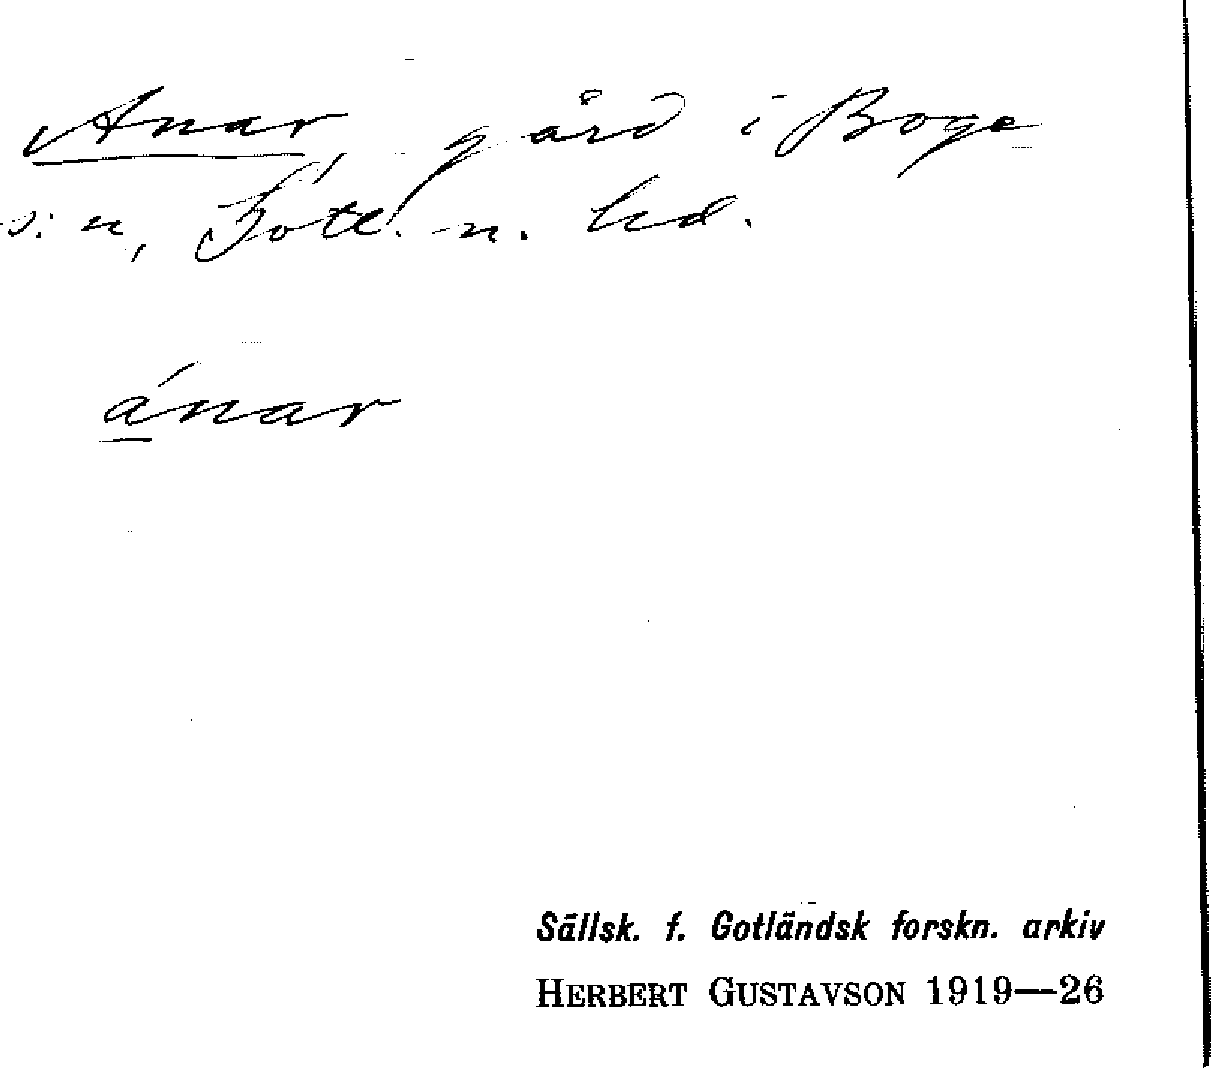 Anar, gård i Boge
s:n, Götl. n. hd.
ánar
Sällsk. f. Gotländsk forskn. arkiv
HERBERT GUSTAVSON 1919—26